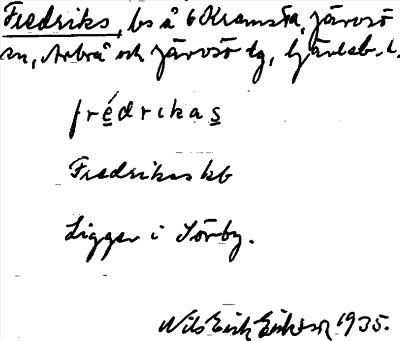 Fredriks, bs å 6 Kramsta, Järvsö
sn, Arbrå och Järvsö tg, Gävleb. l.
frédrikas
Fredrikas kb
Ligger i Sörby.
Nils Erik Eriksson 1935.